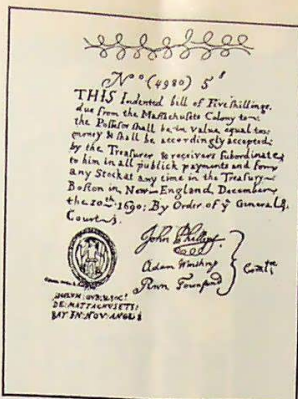 No (4980) 5s
THIS Indented bill of Five shillings
due from the Massachusets Colony to
the Possesor shall be in value equal to
money & shall be accordingly accepted
by the Treasurer & receivers Subordinate
to him in all publick payments and for
any Stock at any time in the Treasury
Boston in New-England, December
the 10th. 1690; By Order of ye General
Court.
John Phillips
Adam Winthrop
Penn Townsend
Comtee
SIGILLUM: GUB: & SOC:
DE: MATTACHUSETS:
BAY: IN: NOV: ANGL: